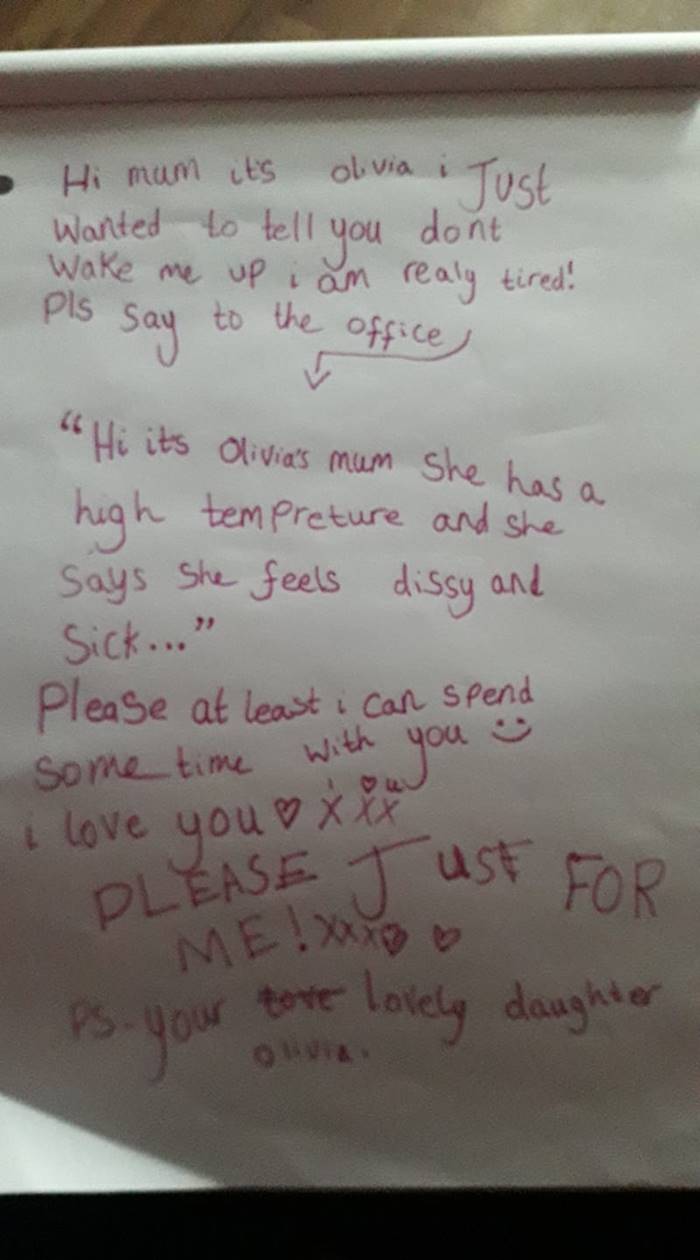 Hi mum its olivia i Just
Wanted to tell you dont
Wake me up i am realy tired!
Pls say to the office
"Hi its Olivia's mum She has a
high tempreture and she
Says She feels dissy and
Sick..."
Please at least i can spend
some time with you :)
i love you ♡ xxx
PLEASE JUST FOR
ME! xxx♡ ♡
PS. your lovely daughter
Olivia.